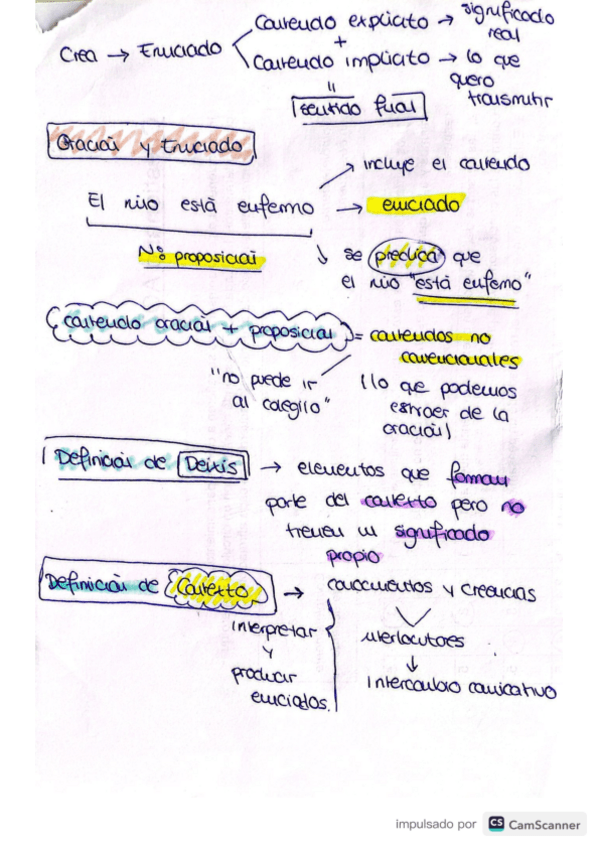 Contenido explícito → significado real
Crea → Enunciado
+
Contenido implícito → lo que quero transmitir
=
sentido final
Oración y Enunciado
→ incluye el contenido
El niño está enfermo → enunciado
No proposición
↓ se predica que
el niño "está enfermo"
(contenido oración + proposición) = contenidos no convencionales
"no puede ir al colegio"
(lo que podemos extraer de la oración)
Definición de Deixis → elementos que forman
parte del contexto pero no
tienen un significado
propio
Definición de Contexto → conocimientos y creencias
interpretar
y
producir
enunciados.
interlocutores
↓
Intercambio comunicativo
impulsado por CS CamScanner